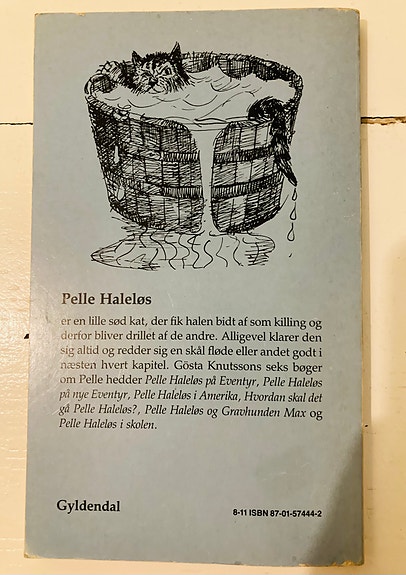 Pelle Haleløs
er en lille sød kat, der fik halen bidt af som killing og
derfor bliver drillet af de andre. Alligevel klarer den
sig altid og redder sig en skål fløde eller andet godt i
næsten hvert kapitel. Gösta Knutssons seks bøger
om Pelle hedder Pelle Haleløs på Eventyr, Pelle Haleløs
på nye Eventyr, Pelle Haleløs i Amerika, Hvordan skal det
gå Pelle Haleløs?, Pelle Haleløs og Gravhunden Max og
Pelle Haleløs i skolen.
Gyldendal
8-11 ISBN 87-01-57444-2